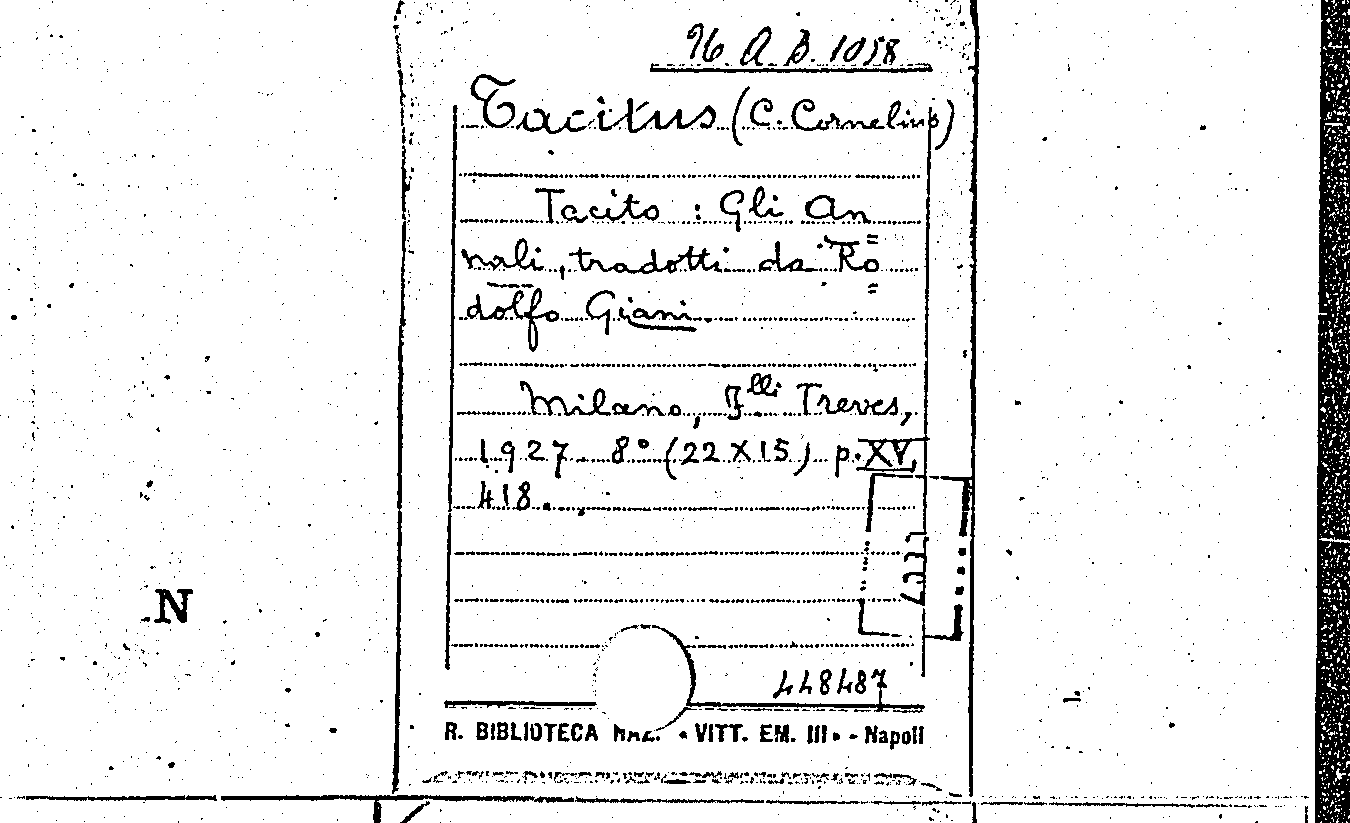 96 A. B. 1058
Tacitus (C. Cornelius)
Tacito : Gli An
nali, tradotti da Ro
dolfo Giani.
Milano, F.lli Treves,
1927 8° (22 X 15) p. XV,
418.
N
448487
R. BIBLIOTECA NAZ. « VITT. EM. III» - Napoli